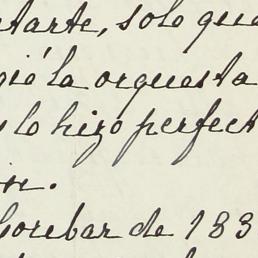 tarte, solo que
gió la orquesta
lo hizo perfect
in.
Corebar de 183